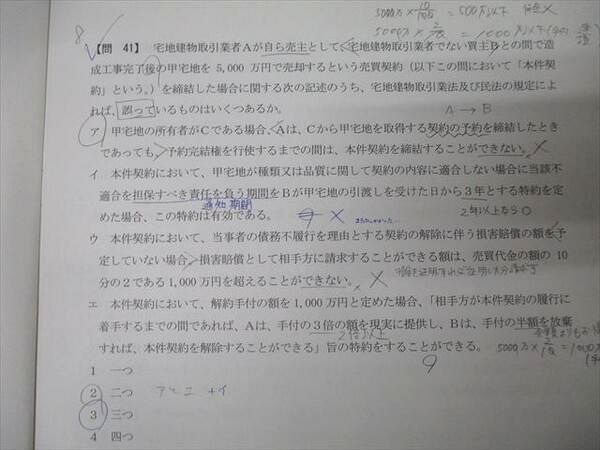 5000万×10/100=500万以下
5000万×2/10=1000万以下
8
【問 41】 宅地建物取引業者Aが自ら売主として、宅地建物取引業者でない買主Bとの間で造
成工事完了後の甲宅地を 5,000 万円で売却するという売買契約（以下この問において「本件契
約」という。）を締結した場合に関する次の記述のうち、宅地建物取引業法及び民法の規定によ
れば、誤っているものはいくつあるか。
A → B
ア 甲宅地の所有者がCである場合、Aは、Cから甲宅地を取得する契約の予約を締結したとき
であっても、予約完結権を行使するまでの間は、本件契約を締結することができない。 ×
イ 本件契約において、甲宅地が種類又は品質に関して契約の内容に適合しない場合に当該不
適合を担保すべき責任を負う期間をBが甲宅地の引渡しを受けた日から３年とする特約を定
通知期間
めた場合、この特約は有効である。 ×
2年以上なら○
ウ 本件契約において、当事者の債務不履行を理由とする契約の解除に伴う損害賠償の額を予
定していない場合、損害賠償として相手方に請求することができる額は、売買代金の額の 10
分の２である 1,000 万円を超えることができない。 ×
エ 本件契約において、解約手付の額を 1,000 万円と定めた場合、「相手方が本件契約の履行に
着手するまでの間であれば、Aは、手付の３倍の額を現実に提供し、Bは、手付の半額を放棄
2倍以上
すれば、本件契約を解除することができる」旨の特約をすることができる。
5000万×2/10=1000万
1 一つ
2 二つ アとエ +イ
3 三つ
4 四つ